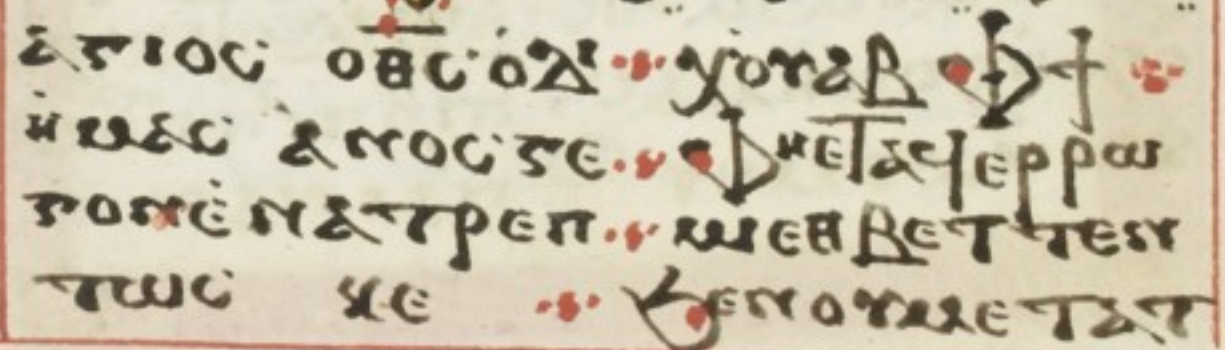 ⲁ̀ⲅⲓⲟⲥ ⲟⲑ̅ⲥ ⲟ̀ⲇ ⲭ̀ⲟⲩⲁⲃ ⲫϯ
ⲏ̀ⲙⲁⲥ ⲁ̀ⲛⲟⲥ ⲅⲉ ⲫⲏⲉⲧⲁϥⲉⲣⲣⲱ
ⲅⲟⲛⲉ̀ⲛⲁⲧⲣⲉⲡ ⲙⲓⲉⲑⲃⲉⲧⲧⲉⲛ
ⲧⲱⲥ ⲕⲉ ϧⲉⲛⲟⲩⲙⲉⲧⲁⲧ